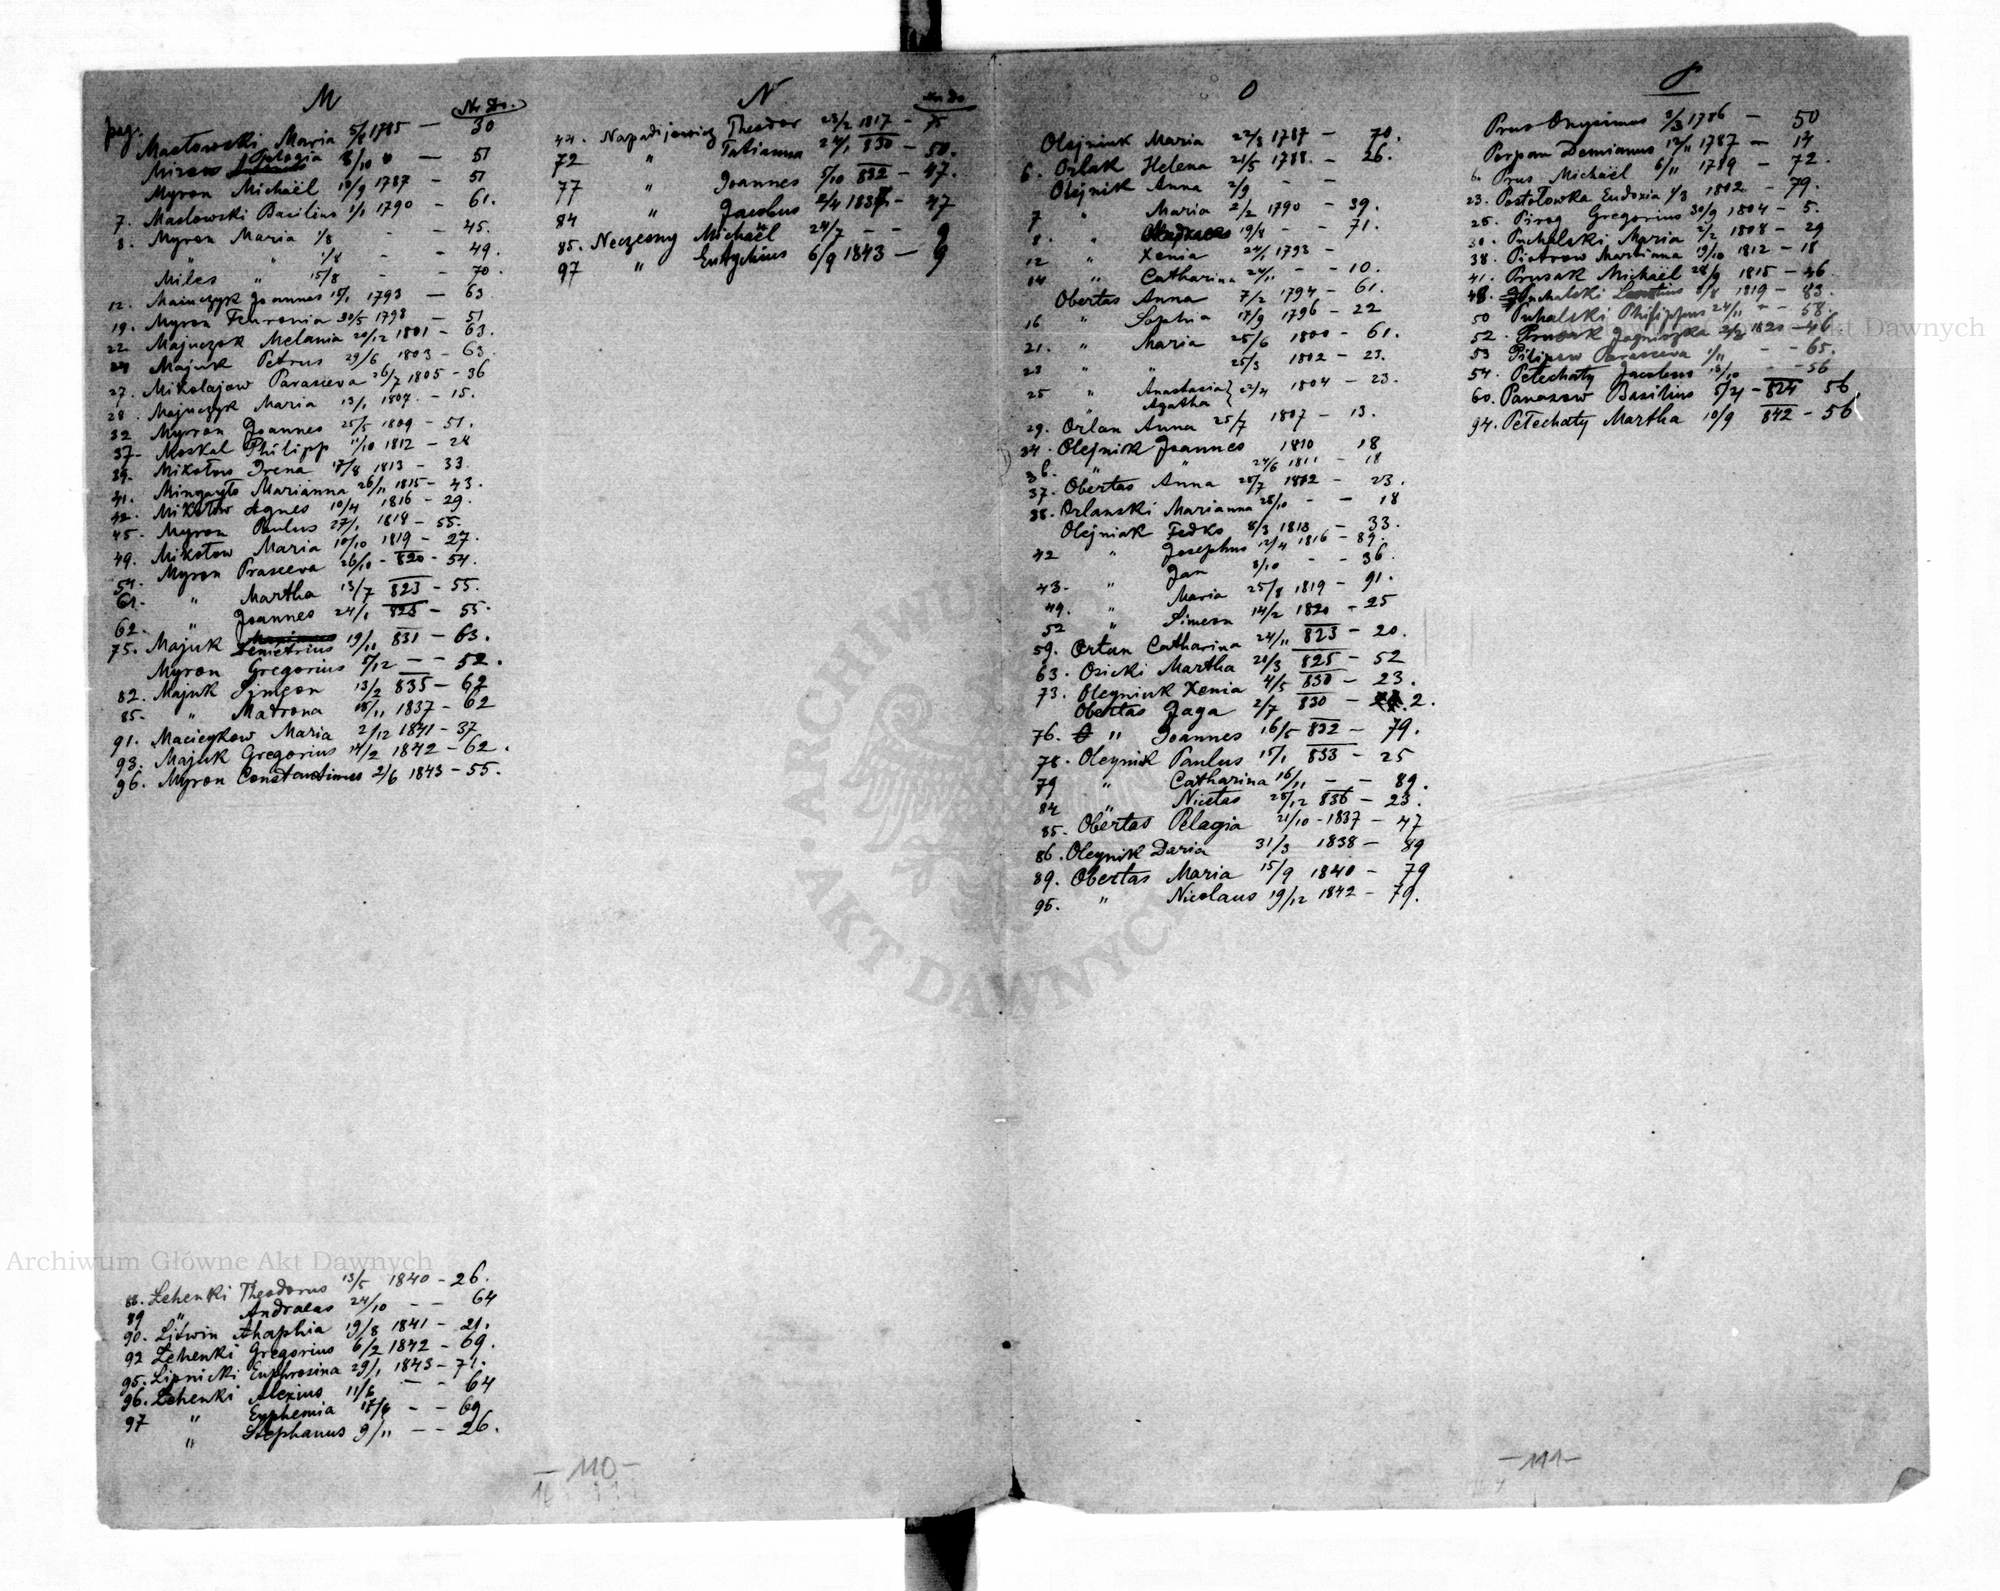 M
pag. Nr Do.
Masłowski Maria 5/8 1785 — 30
Mizow Pelagia 8/10 — 51
Myron Michaël 10/9 1787 — 51
7. Masłowski Basilius 1/1 1790 — 61.
8. Myron Maria 1/8 — - 45.
" " 1/8 - - 49.
Miles " 15/8 - - 70.
12. Mainczyk Joannes 15/1 1793 — 63
19. Myron Fevronia 30/5 1798 — 51
22 Majnczok Melania 20/12 1801 — 63.
24 Majuk Petrus 29/6 1803 — 63.
27. Mikołajow Parasceva 26/7 1805 - 36
28. Majnczyk Maria 13/1 1807. — 15.
32 Myron Joannes 25/5 1809 — 51.
37. Moskal Philipp 11/10 1812 — 24
39. Mikołow Irena 17/8 1813 — 33.
41. Marianna 26/11 1815 — 43.
42. Mikołow Agnes 10/4 1816 — 29.
45. Myron Paulus 27/1 1818 — 55.
49. Mikołow Maria 10/10 1819 — 27.
54. Myron Prasceva 26/10 - 820 - 54.
61. " Martha 13/7 823 — 55.
62. Joannes 24/1 825 — 55.
75. Majuk Demetrius 19/11 831 — 63.
Myron Gregorius 5/12 — — 52.
82. Majuk Simeon 13/2 835 — 62
85. " Matrona 15/11 1837 — 62
91. Macieykow Maria 2/12 1841 — 37
93. Majuk Gregorius 14/2 1842 — 62.
96. Myron Constantinus 2/6 1843 — 55.
88. Lehenki Theodorus 13/5 1840 - 26.
89 " Andraeas 24/10 — — 64
90. Litwin Ahaphia 19/8 1841 — 21.
92 Lehenki Gregorius 6/2 1842 — 69.
95. Lipnicki Euphrosina 29/1 1843 - 71.
96. Lehenki Alexius 11/6 — — 64
97 " Euphemia 17/9 — — 69
" Stephanus 9/11 — — 26.
— 110 —
N
Nr Do
44. Napadijewicz Theodor 23/2 1817 — 75
72 " Tatianna 24/1 830 — 50.
77 " Joannes 5/10 832 — 47.
84 " Jacobus 2/4 1837 — 47
85. Neczesny Michaël 24/7 — — 9
97 " Eutychius 6/9 1843 — 9
O
Olejniuk Maria 22/8 1787 — 70.
6. Orlak Helena 21/5 1788. — 26.
Olejnik Anna 2/9 — —
7 " Maria 2/2 1790 — 39.
8. " 19/8 — — 71.
12 " Xenia 24/1 1793 —
14 " Catharina 24/11 — — 10.
Obertas Anna 7/2 1794 — 61.
16 " Sophia 17/9 1796 — 22
21. " Maria 25/6 1800 — 61.
23 " " 25/3 1802 — 23.
25 " Anastasia } 22/4 1804 — 23.
Agatha
29. Orlan Anna 25/7 1807 — 13.
34. Olejnik Joannes 1810 18
36. " " 24/6 1811 — 18
37. Obertas Anna 28/7 1812 — 23.
38. Orlanski Marianna 28/10 — — 18
Olejniak Fedko 8/3 1813 — 33.
42 " Josephus 12/4 1816 — 89.
Jan 8/10 — — 36.
43. " Maria 25/8 1819 — 91.
49. " Simeon 14/2 1820 — 25
52 "
59. Ortan Catharina 24/11 823 — 20.
63. Osicki Martha 20/3 825 — 52
73. Oleyniuk Xenia 4/5 830 — 23.
Obertas Jaga 2/7 830 — 2.
76. " Joannes 16/5 832 — 79.
78. Oleynik Paulus 15/1 833 — 25
79 " Catharina 16/11 — — 89.
84 " Nicetas 25/12 836 — 23.
85. Obertas Pelagia 21/10 - 1837 — 47
86. Oleynik Daria 31/3 1838 — 89
89. Obertas Maria 15/9 1840 — 79
95. " Nicolaus 19/12 1842 — 79.
P
Prus Onysimus 3/3 1786 — 50
Porpan Demianus 12/11 1787 — 14
6. Prus Michaël 6/11 1789 — 72.
23. Postołowka Eudoxia 1/3 1802. — 79.
25. Pirog Gregorius 30/9 1804 — 5.
30. Puhalski Maria 2/2 1808 — 29
38. Piotrow Martianna 19/10 1812 — 18
41. Prusak Michaël 28/9 1815 — 46
48. Puhalski 1/8 1819 — 83.
50 Puhalski Philippus 24/11 — — 58.
52. Prusak Jagniszka 2/2 1820 — 46
53 Pilipow Parasceva 1/11 — — 65.
54. Petechaty Jacobus 13/10 — — 56
60. Panasow Basilius 5/21 — 824 56
94. Petechaty Martha 10/9 842 — 56
— 111 —
Archiwum Główne Akt Dawnych
ARCHIWUM
AKT DAWNYCH
Akt Dawnych